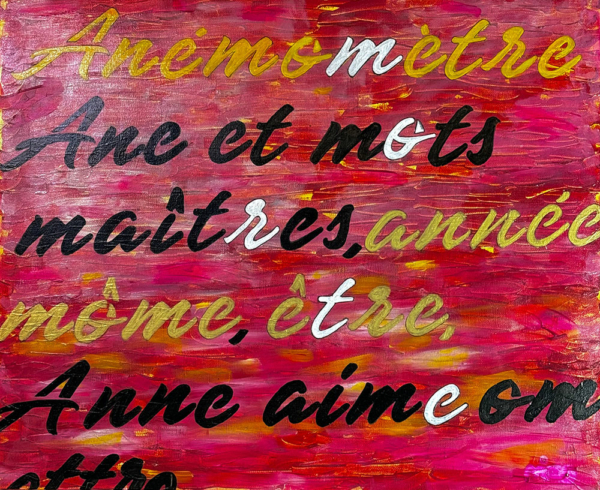 Anémomètre
Ane et mots
maîtres, année
môme, être,
Anne aime om
ettre